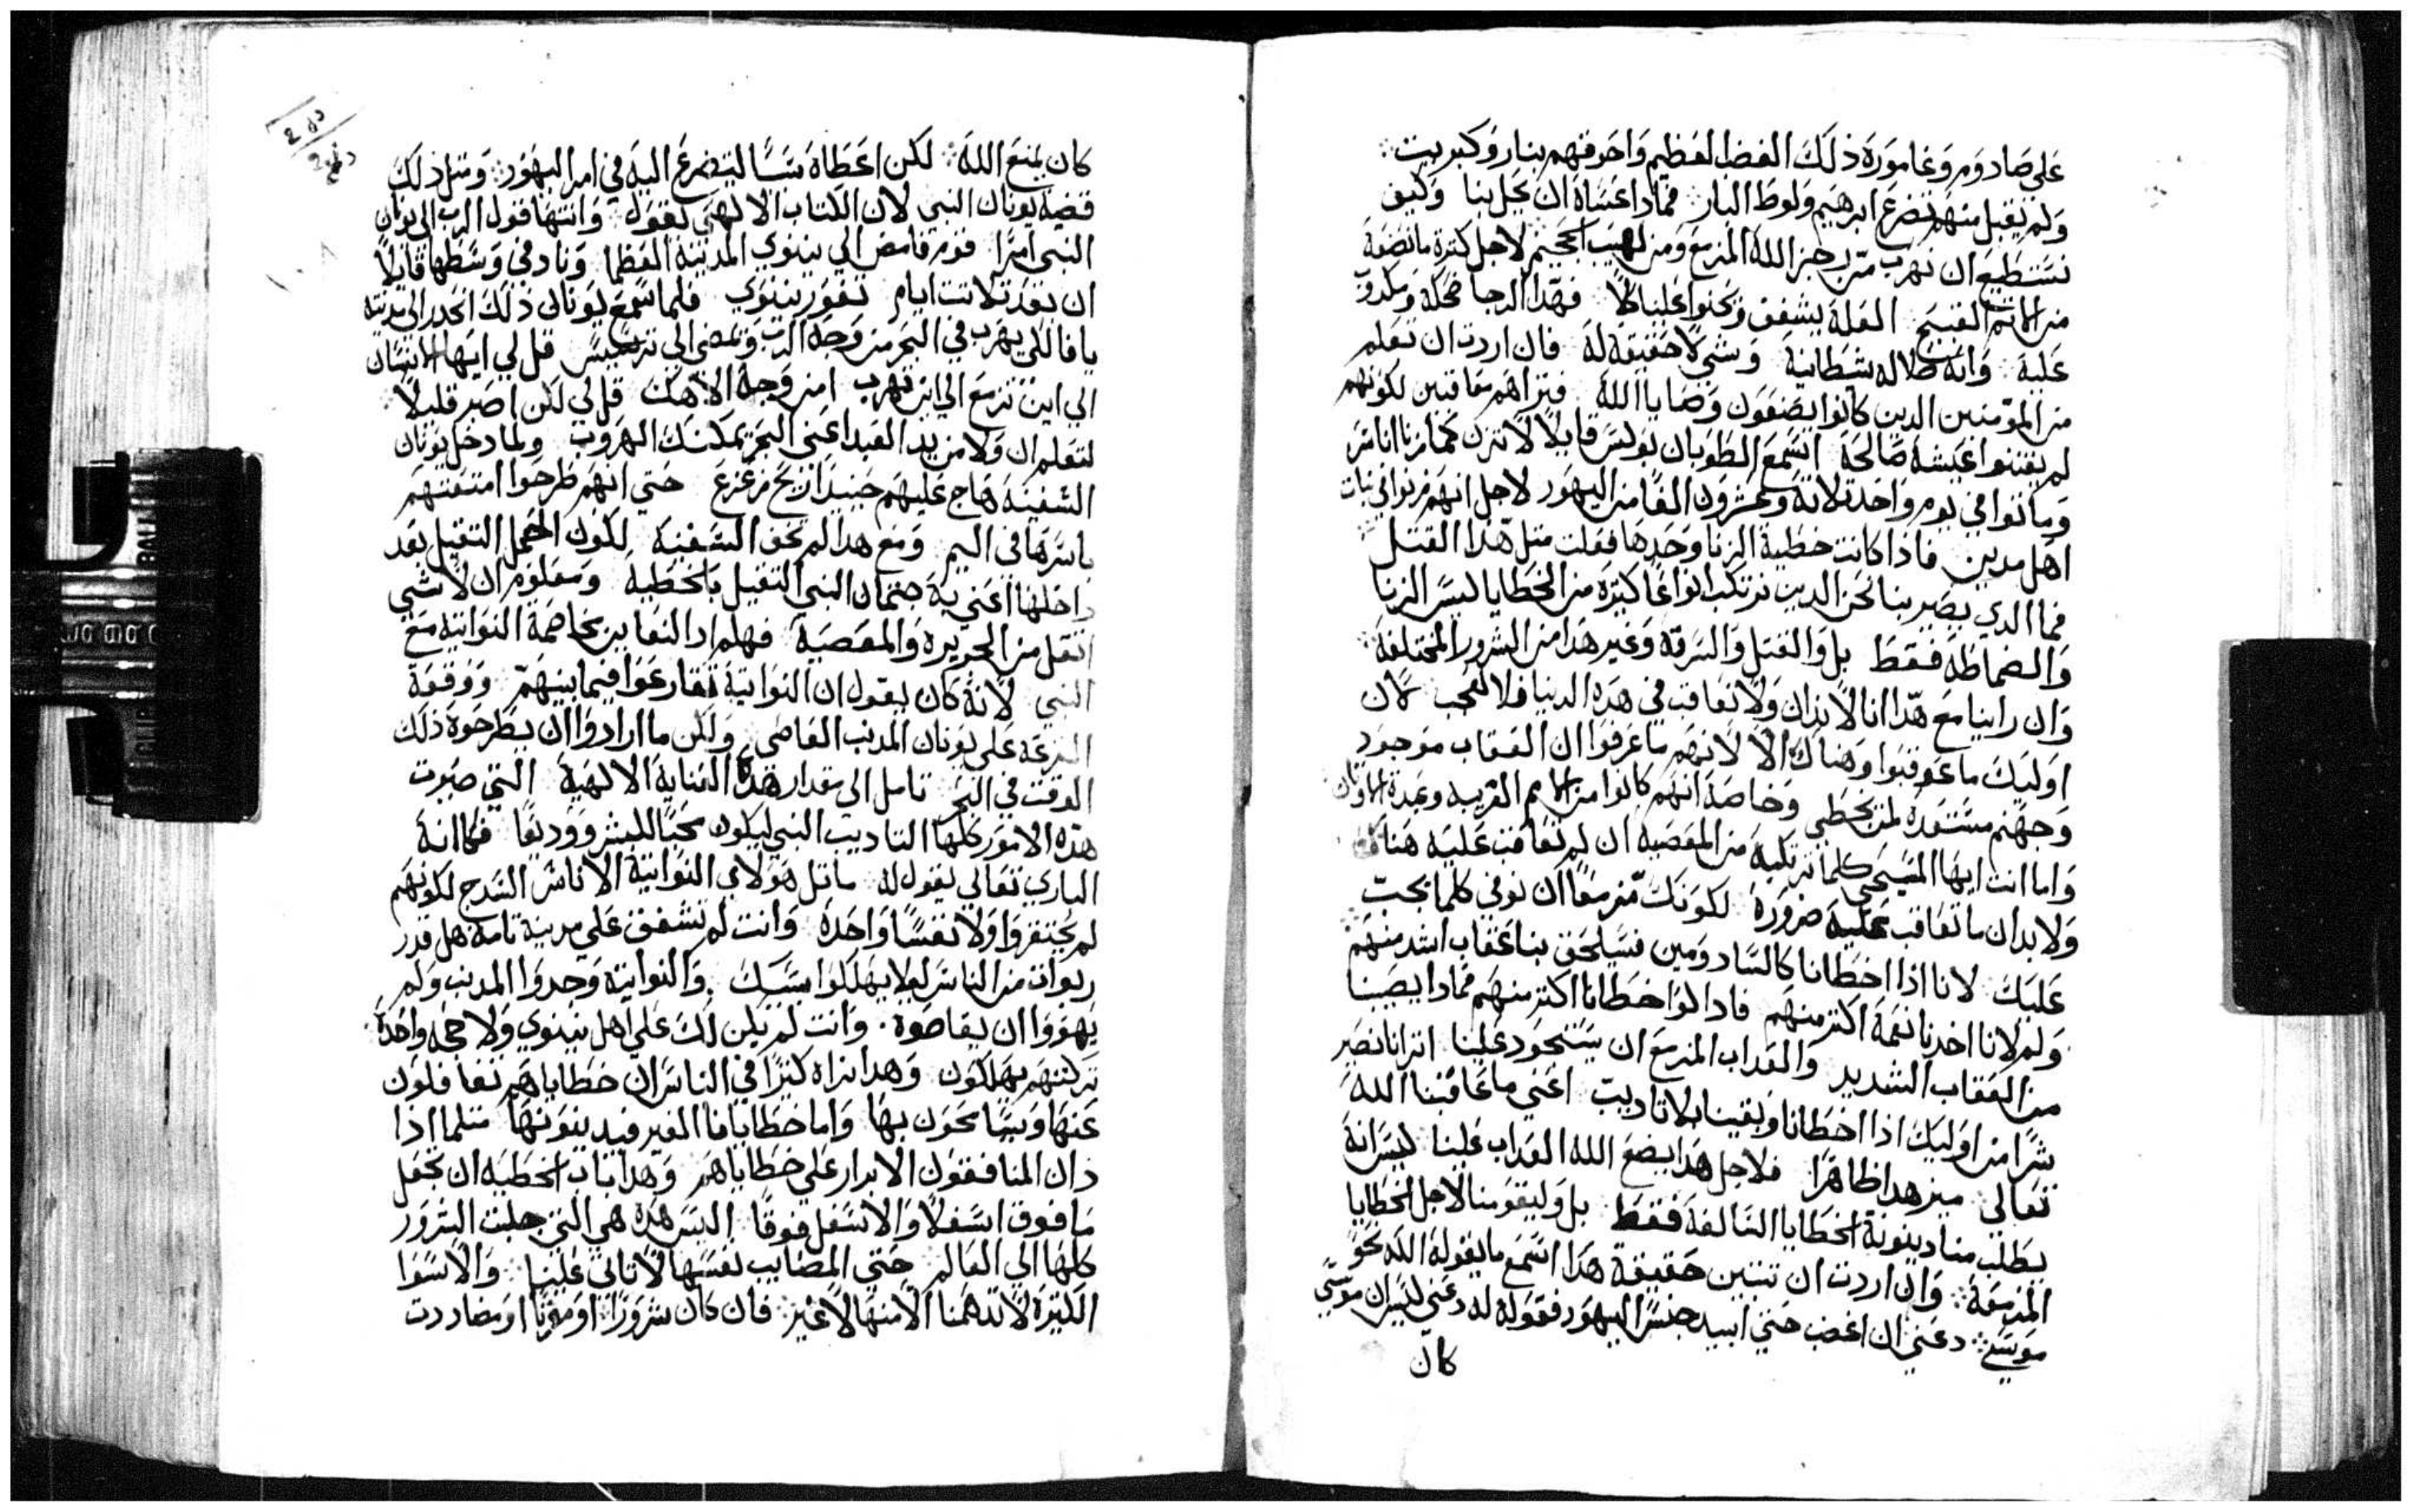 علي صادوم وغامورة ذلك الغضب العظيم واحرقهم بنار وكبريت
ولم يقبل منهم تضرع ابرهيم ولوط البار فماذا عساه ان يحل بنا وكيف
نستطيع ان نهرب من رجز الله المزمع ومن لهيب الجحيم لاجل كثرة ما نصنعه
من الاثم القبيح العله يشفق ويحنوا علينا كلا فهذا الرجا ضحكة
عليه وانه ضلاله شطانية وشي لا حقيقة له فان اردت ان تعلم
من المومنين الدين كانوا يضعون وصايا الله فتراهم معاقبين لكونهم
لم يقتنوا عيشة صالحة اسمع الطوبان بولس قايلا لا تزن كما زنا اناس
وماتوا في يوم واحد ثلاثة وعشرون الفا من اليهود لاجل انهم زنوا في بنات
اهل مدين فاذا كانت خطية الزنا وحدها فعلت مثل هذا القتل
فما الدي يصير بنا نحن الدين نرتكب انواعا كثيرة من الخطايا ليس الزنا
والضماطة فقط بل والقتل والسرقة وغير هدا من الشرور المختلفة
وان راينا مع هذا انا لاندان ولا نعاقب في هده الدنيا فلا نعجب لان
اوليك ما عوقبوا وهناك الا لانهم ما عرفوا ان العقاب موجود
وجهنم مستعدة لمن يخطي وخاصة انهم كانوا من الامم الغريبه وعبدة الاوثان
واما انت ايها المسيحي كلما ترتكبه من المعصيه ان لم تعاقب عليه هنا
ولا بد ان ما تعاقب عليه ضرورة لكونك مزمعا ان توفي كلما يجب
عليك لانا اذا اخطانا كالسادومين فسيلحق بنا عقاب اشد منهم
ولم لانا اخدنا نعمة اكتر منهم فادا لو اخطانا اكتر منهم فمادا يصيبنا
من العقاب الشديد والعداب المزمع ان يستحود علينا اترانا نصير
شرا من اوليك اذا اخطانا وبقينا بلا تاديب اعني ما عاقبنا الله
تعالي ميز هدا ظاهرا فلاجل هدا يضع الله العداب علينا ليس انه
يطلب منا دينونة الخطايا السالفة فقط بل وليقومنا لاجل الخطايا
المزمعة وان اردت ان تتبين حقيقة هدا اسمع ما يقوله الله نحو
موسي دعني ان اغضب حتي ابيد جنس اليهود فقوله له دعني ليس ان موسي
كان
كان يمنع الله لكن اعطاه سببا ليتضرع اليه في امر اليهود ومثل ذلك
قضية يونان النبي لان الكتاب الالهي يقول وانتها قول الرب الي يونان
النبي امرا قوم فامض الي نينوي المدينة العظما وناد في وسطها قايلا
ان بعد ثلاثت ايام تغور نينوي فلما سمع يونان ذلك انحدر الي مدينة
يافا لكي يهرب في البحر من وجه الرب ويمضي الي ترسيس قل لي ايها الانسان
الي اين تزمع الي اين تهرب امن وجه الاهك قل لي لكن اصبر قليلا
لتعلم ان ولا من يد العبد اعني البحر يمكنك الهروب ولما دخل يونان
السفينة هاج عليهم حينيد ريح مزعزع حتي انهم طرحوا امتعتهم
باسرها في اليم ومع هدا لم تخف السفينة لكون الحمل التقيل بعد
داخلها اعني به جتمان النبي التقيل بالخطية ومعلوم ان لا شي
اتقل من الجريره والمعصية فهلم اد النعاين مخاصمة النواتية مع
النبي لانه كان يقول ان النواتية تقارعوا فيما بينهم ووقعة
القرعه علي يونان المدنب العاصي ولكن ما ارادوا ان يطرحوه ذلك
الوقت في البحر تامل الي مقدار هده العناية الالهية التي صيرت
هده الامور كلها التاديب النبي ليكون محبا للبشر ووديعا فكانه
الباري تعالي يقول له ماتل هولاي النواتية الاناس السدج لكونهم
لم يحتقروا ولا نفسا واحدة وانت لم تشفق علي مدينة تامة هل قدر
ربوات من الناس ليلا يهلكوا بسببك والنواتية وجدوا المدنب ولم
يهووا ان يقاصوه وانت لم يكن لك علي اهل نينوي ولا حجه واحدة
تركتهم يهلكون وهدا نراه كثيرا في الناس ان خطاياهم يتغافلون
عنها ويسامحون بها واما خطايا الغير فيدينونها متلما اذا
دان المنافقون الابرار علي خطاياهم وهدا باب الخطيه ان تجعل
ما فوق اسفلا والاسفل فوقا اليس هده هي التي جلبت الشرور
كلها الي العالم حتي المصايب نفسها لا تاتي علينا والاسوا
الكثيرة لا تدهمنا الا منها لا غير فان كان شرورا او موتا او مضاددت